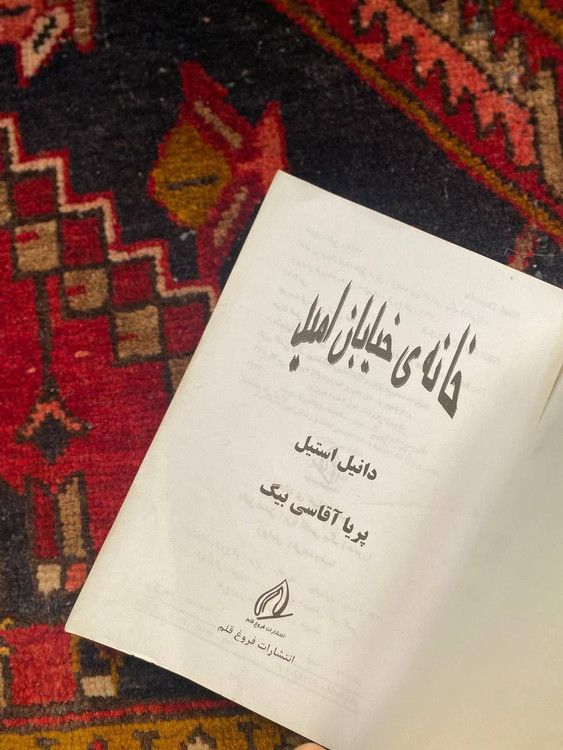 خانه‌ی خیابان امید
دانیل استیل
پریا آقاسی بیگ
انتشارات فروغ قلم
انتشارات فروغ قلم